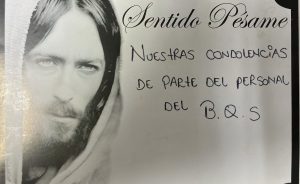 Sentido Pésame
NUESTRAS CONDOLENCIAS
DE PARTE DEL PERSONAL
DEL B.Q.S